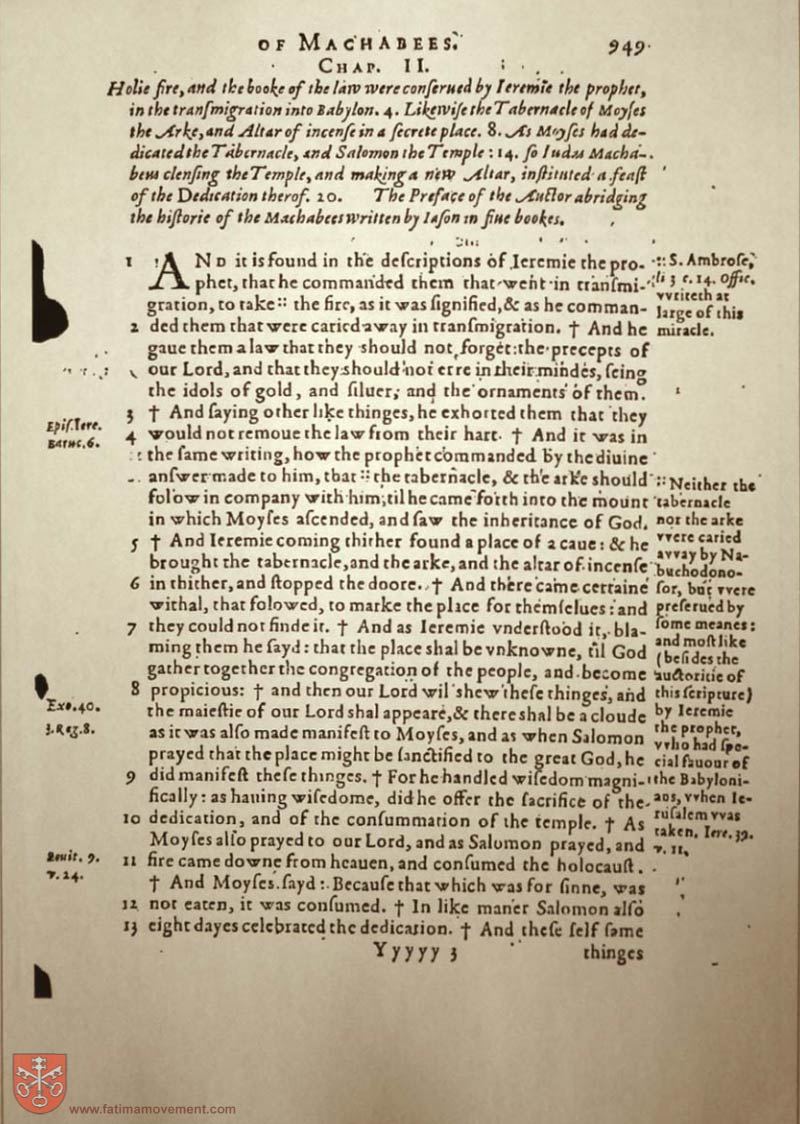 OF MACHABEES. 949.
CHAP. II.
Holie fire, and the booke of the law were conſerued by Ieremie the prophet,
in the tranſmigration into Babylon. 4. Likewiſe the Tabernacle of Moyſes
the Arke, and Altar of incenſe in a ſecrete place. 8. As Moyſes had de-
dicated the Tabernacle, and Salomon the Temple : 14. ſo Iudas Macha-
beus clenſing the Temple, and making a new Altar, inſtituted a feaſt
of the Dedication therof. 20. The Preface of the Auctor abridging
the hiſtorie of the Machabees written by Iaſon in fiue bookes.
1 AND it is found in the deſcriptions of Ieremie the pro-
phet, that he commanded them that went in tranſmi-
gration, to take :: the fire, as it was ſignified, & as he comman-
2 ded them that were caried away in tranſmigration. † And he
gaue them a law that they should not forget the precepts of
our Lord, and that they should not erre in their mindes, ſeing
the idols of gold, and ſiluer, and the ornaments of them.
3 † And ſaying other like thinges, he exhorted them that they
4 would not remoue the law from their hart. † And it was in
the ſame writing, how the prophet commanded by the diuine
anſwer made to him, that :: the tabernacle, & the arke should
folow in company with him, til he came forth into the mount
in which Moyſes aſcended, and ſaw the inheritance of God.
5 † And Ieremie coming thither found a place of a caue : & he
brought the tabernacle, and the arke, and the altar of incenſe
6 in thither, and ſtopped the doore. † And there came certaine
withal, that folowed, to marke the place for themſelues : and
7 they could not finde it. † And as Ieremie vnderſtood it, bla-
ming them he ſayd : that the place shal be vnknowne, til God
gather together the congregation of the people, and become
8 propicious : † and then our Lord wil shew theſe thinges, and
the maieſtie of our Lord shal appeare, & there shal be a cloude
as it was alſo made manifeſt to Moyſes, and as when Salomon
prayed that the place might be ſanctified to the great God, he
9 did manifeſt theſe thinges. † For he handled wiſedom magni-
fically : as hauing wiſedome, did he offer the ſacrifice of the
10 dedication, and of the conſummation of the temple. † As
Moyſes alſo prayed to our Lord, and as Salomon prayed, and
11 fire came downe from heauen, and conſumed the holocauſt.
† And Moyſes ſayd : Becauſe that which was for ſinne, was
12 not eaten, it was conſumed. † In like maner Salomon alſo
13 eight dayes celebrated the dedication. † And theſe ſelf ſame
Yyyyy 3 thinges
:: S. Ambroſe,
li 3 c. 14. Offic.
vvriteth at
large of this
miracle.
:: Neither the
tabernacle
nor the arke
vvere caried
avvay by Na-
buchodono-
ſor, but vvere
preſerued by
ſome meanes :
and moſt like
(beſides the
auctoritie of
this ſcripture)
by Ieremie
the prophet,
vvho had ſpe-
cial fauour of
the Babyloni-
ans, vvhen Ie-
ruſalem vvas
taken. Iere. 39.
v. 11.
Epiſ. Iere.
Baruc. 6.
Exo. 40.
3. Reg. 8.
Leuit. 9.
v. 24.
www.fatimamovement.com